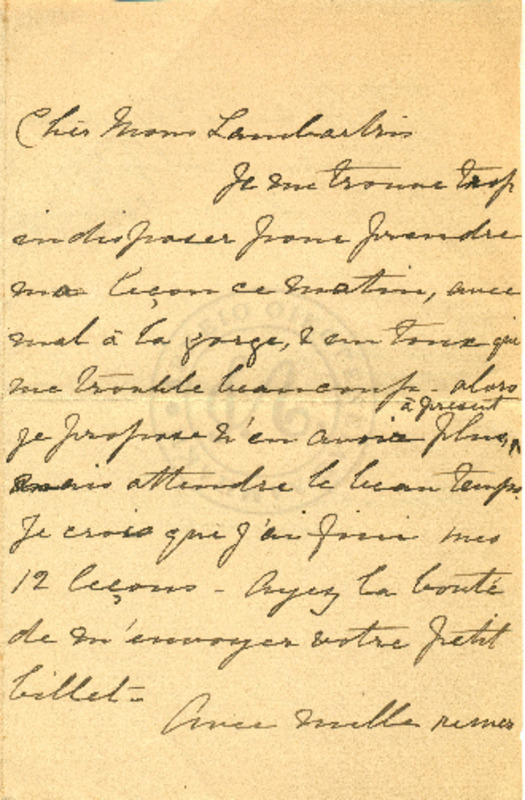 Cher Mons Lambartris
Je me trouve trop
indisposer pour prendre
ma leçon ce matin, avec
mal à la gorge, & un toux qui
me trouble beaucoup - alors
à présent
je propose n'en avoir plus,
mais attendre le beau temps.
Je crois que j'ai fini mes
12 leçons - Ayez la bonté
de m'envoyer votre petit
billet -
Avec mille remer